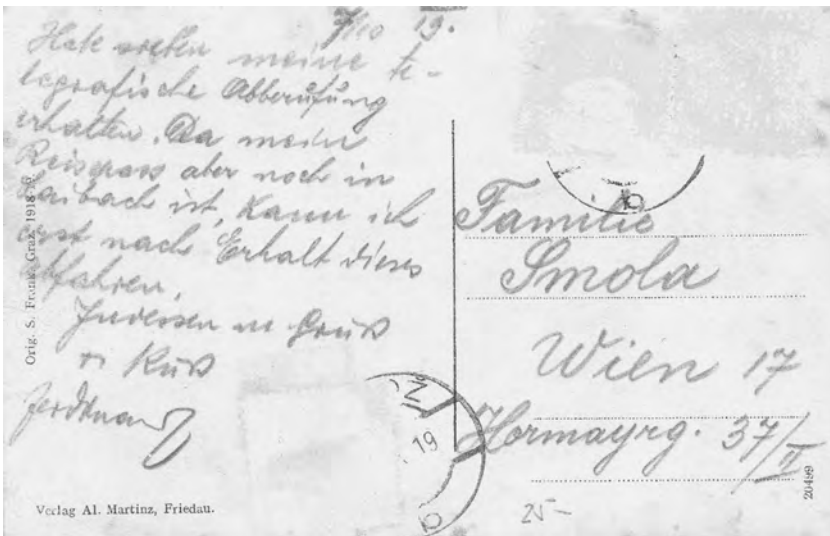 7/10 19.
Habe soeben meine te-
legrafische Abberufung
erhalten. Da mein
Reisepass aber noch in
Laibach ist, kann ich
erst nach Erhalt dieses
abfahren.
Indessen m Gruß
n Kuß
Ferdinand
Familie
Smola
Wien 17
Hormayrg. 37/II
19
25-
Orig. S. Frank, Graz, 1918
Verlag Al. Martinz, Friedau.
20499